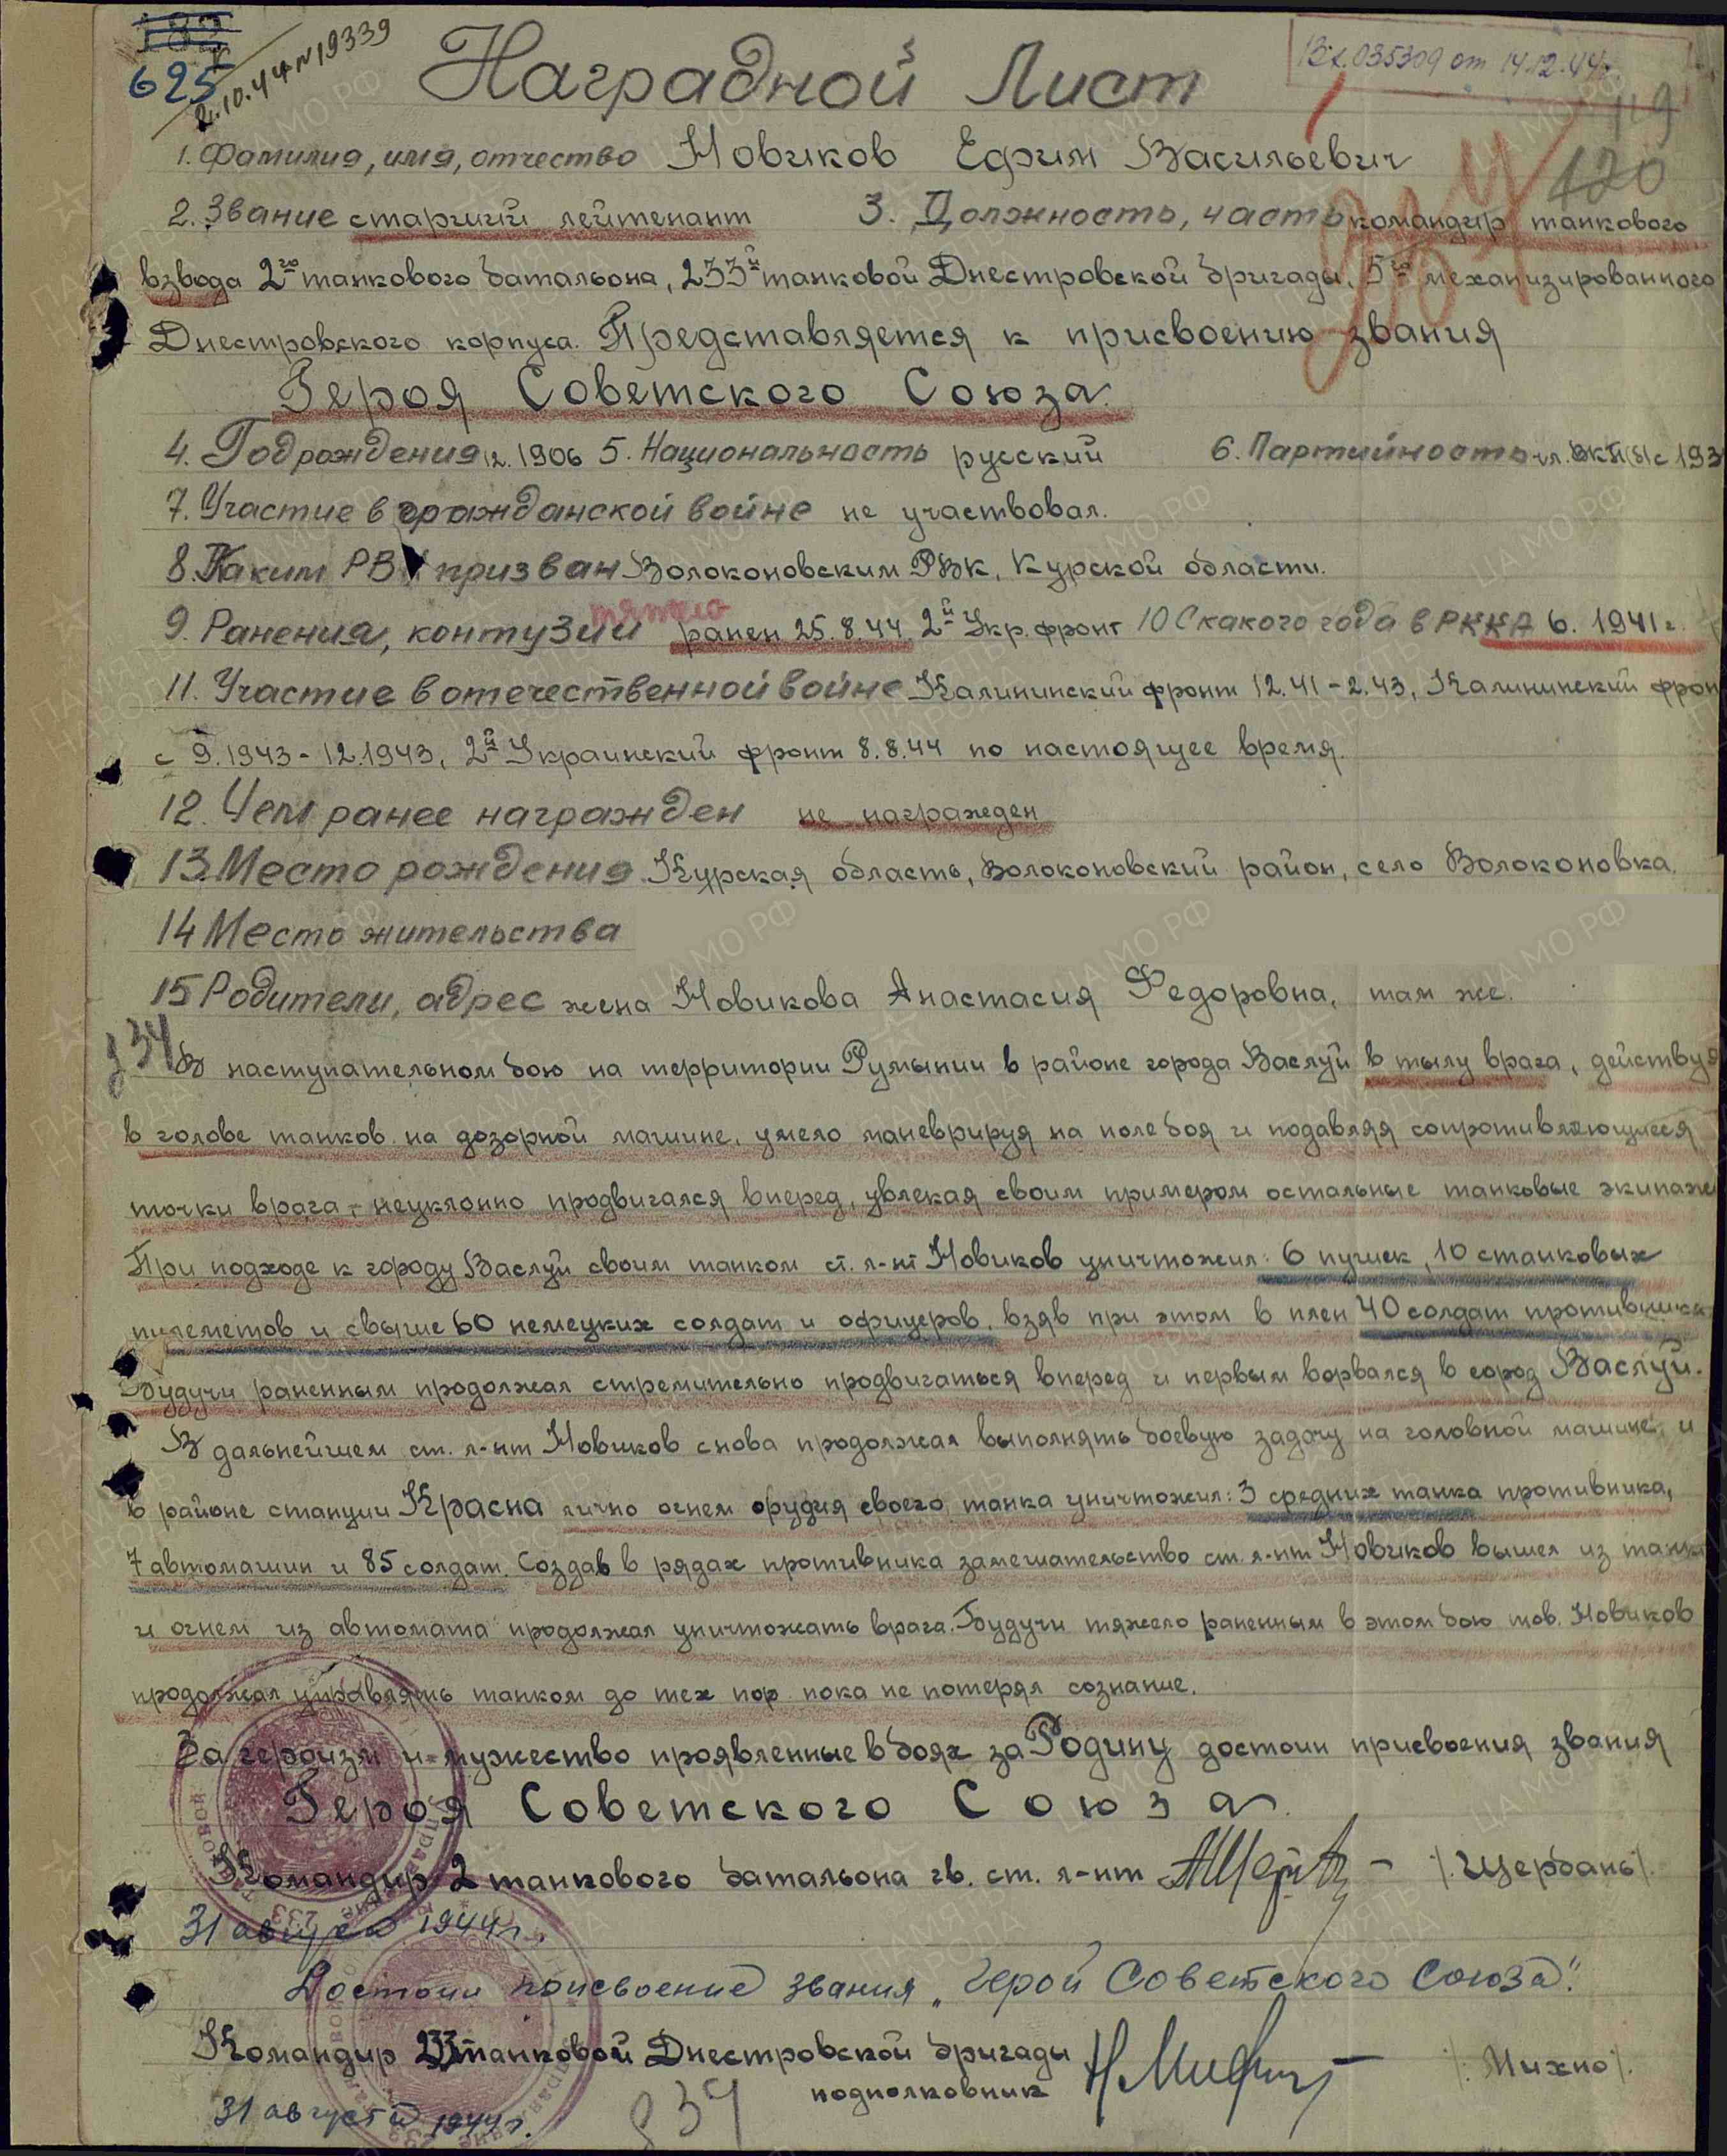 625
2.10.44 N19339
Вх.035309 от 14.12.44г.
119
120
Наградной Лист
1. Фамилия, имя, отчество Новиков Ефим Васильевич
2. Звание старший лейтенант 3. Должность, часть командир танкового
взвода 2го танкового батальона, 233й танковой Днестровской бригады, 5го механизированного
Днестровского корпуса. Представляется к присвоению звания
Героя Советского Союза.
4. Год рождения 12.1906 5. Национальность русский 6. Партийность чл. ВКП(б) с 193
7. Участие в гражданской войне не участвовал.
8. Каким РВК призван Волоконовским РВК, Курской области.
9. Ранения, контузии тяжело ранен 25.8.44. 2й Укр. фронт 10 С какого года в РККА 6. 1941г.
11. Участие в отечественной войне Калининский фронт 12.41-2.43, Калининский фрон
с 9.1943-12.1943, 2й Украинский фронт 8.8.44 по настоящее время.
12. Чем ранее награжден не награжден
13. Место рождения Курская область, Волоконовский район, село Волоконовка.
14 Место жительства
15 Родители, адрес жена Новикова Анастасия Федоровна, там же.
В наступательном бою на территории Румынии в районе города Васлуй в тылу врага, действуя
в голове танков на дозорной машине, умело маневрируя на поле боя и подавляя сопротивляющиеся
точки врага - неуклонно продвигался вперед, увлекая своим примером остальные танковые экипаже
При подходе к городу Васлуй своим танком ст. л-нт Новиков уничтожил: 6 пушек, 10 станковых
пулеметов и свыше 60 немецких солдат и офицеров, взяв при этом в плен 40 солдат противника
Будучи раненным продолжал стремительно продвигаться вперед и первым ворвался в город Васлуй.
В дальнейшем ст. л-нт Новиков снова продолжал выполнять боевую задачу на головной машине и
в районе станции Красна лично огнем орудия своего танка уничтожил: 3 средних танка противника,
7 автомашин и 85 солдат. Создав в рядах противника замешательство ст. л-нт Новиков вышел из танка
и огнем из автомата продолжал уничтожать врага. Будучи тяжело раненным в этом бою тов. Новиков
продолжал управлять танком до тех пор пока не потерял сознание.
За героизм и мужество проявленные в боях за Родину достоин присвоения звания
Героя Советского Союза.
Командир 2 танкового батальона гв. ст. л-нт /Щербань/.
31 августа 1944г.
Достоин присвоение звания „Герой Советского Союза".
Командир 233 танковой Днестровской бригады
подполковник /Михно/.
31 августа 1944г.
834